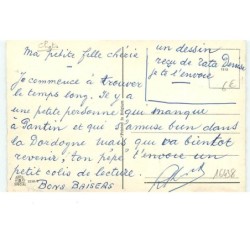 Ma petite fille chérie
un dessin
reçu de Tata Denise
je te l'envoie
Je commence à trouver
le temps long. Il y a
une petite personne qui manque
à Pantin et qui s'amuse bien dans
la Dordogne mais qui va bientôt
revenir, ton pépé t'envoie un
petit colis de lecture.
BONS BAISERS